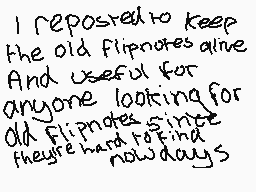 I reposted to keep
the old flipnotes alive
And useful for
anyone looking for
old flipnotes since
they're hard to find
nowdays